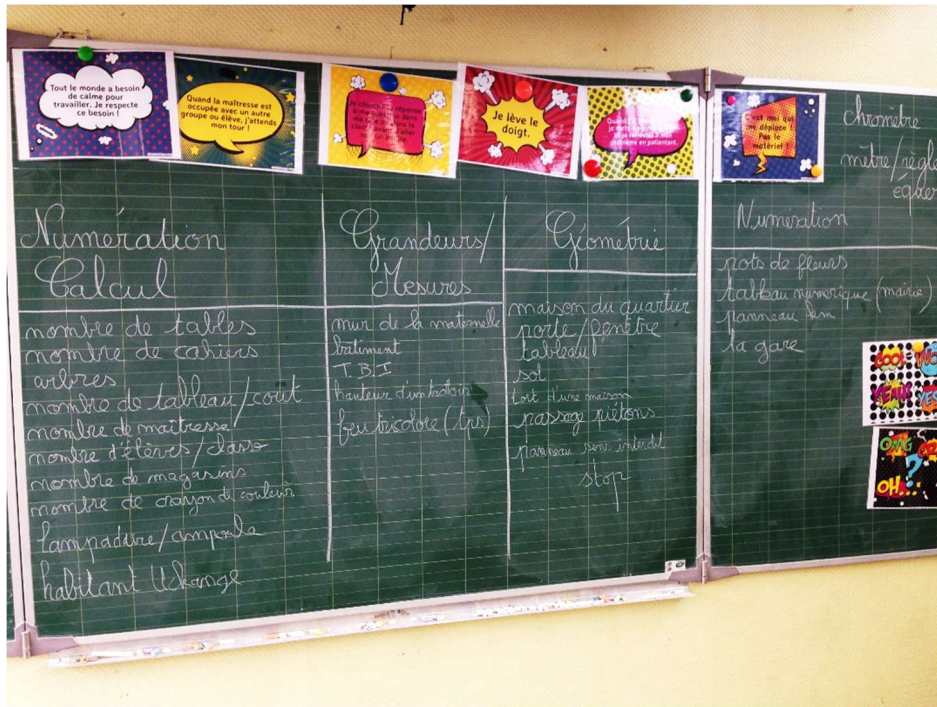 Tout le monde a besoin
de calme pour
travailler. Je respecte
ce besoin !
Quand la maîtresse est
occupée avec un autre
groupe ou élève, j'attends
mon tour !
Je lève le
doigt.
C'est moi qui
me déplace
Pas le
matériel !
Numération
Calcul
nombre de tables
nombre de cahiers
arbres
nombre de tableau/coût
nombre de maîtresse/
nombre d'élèves/classe
nombre de magasins
nombre de crayon de couleur
lampadaire/ampoule
habitant Uckange
Grandeurs/
Mesures
mur de la maternelle
bâtiment
T.B.I
hauteur d'un trottoir
feu tricolore (tps)
Géométrie
maison du quartier
porte/fenêtre
tableau
sol
toit d'une maison
passage piétons
panneau sens interdit
stop
chromètre
mètre/règle
équer
Numération
pots de fleurs
tableau numérique (mairie)
panneau km
la gare
COOL
YEAH!
YES
OMG
OH...